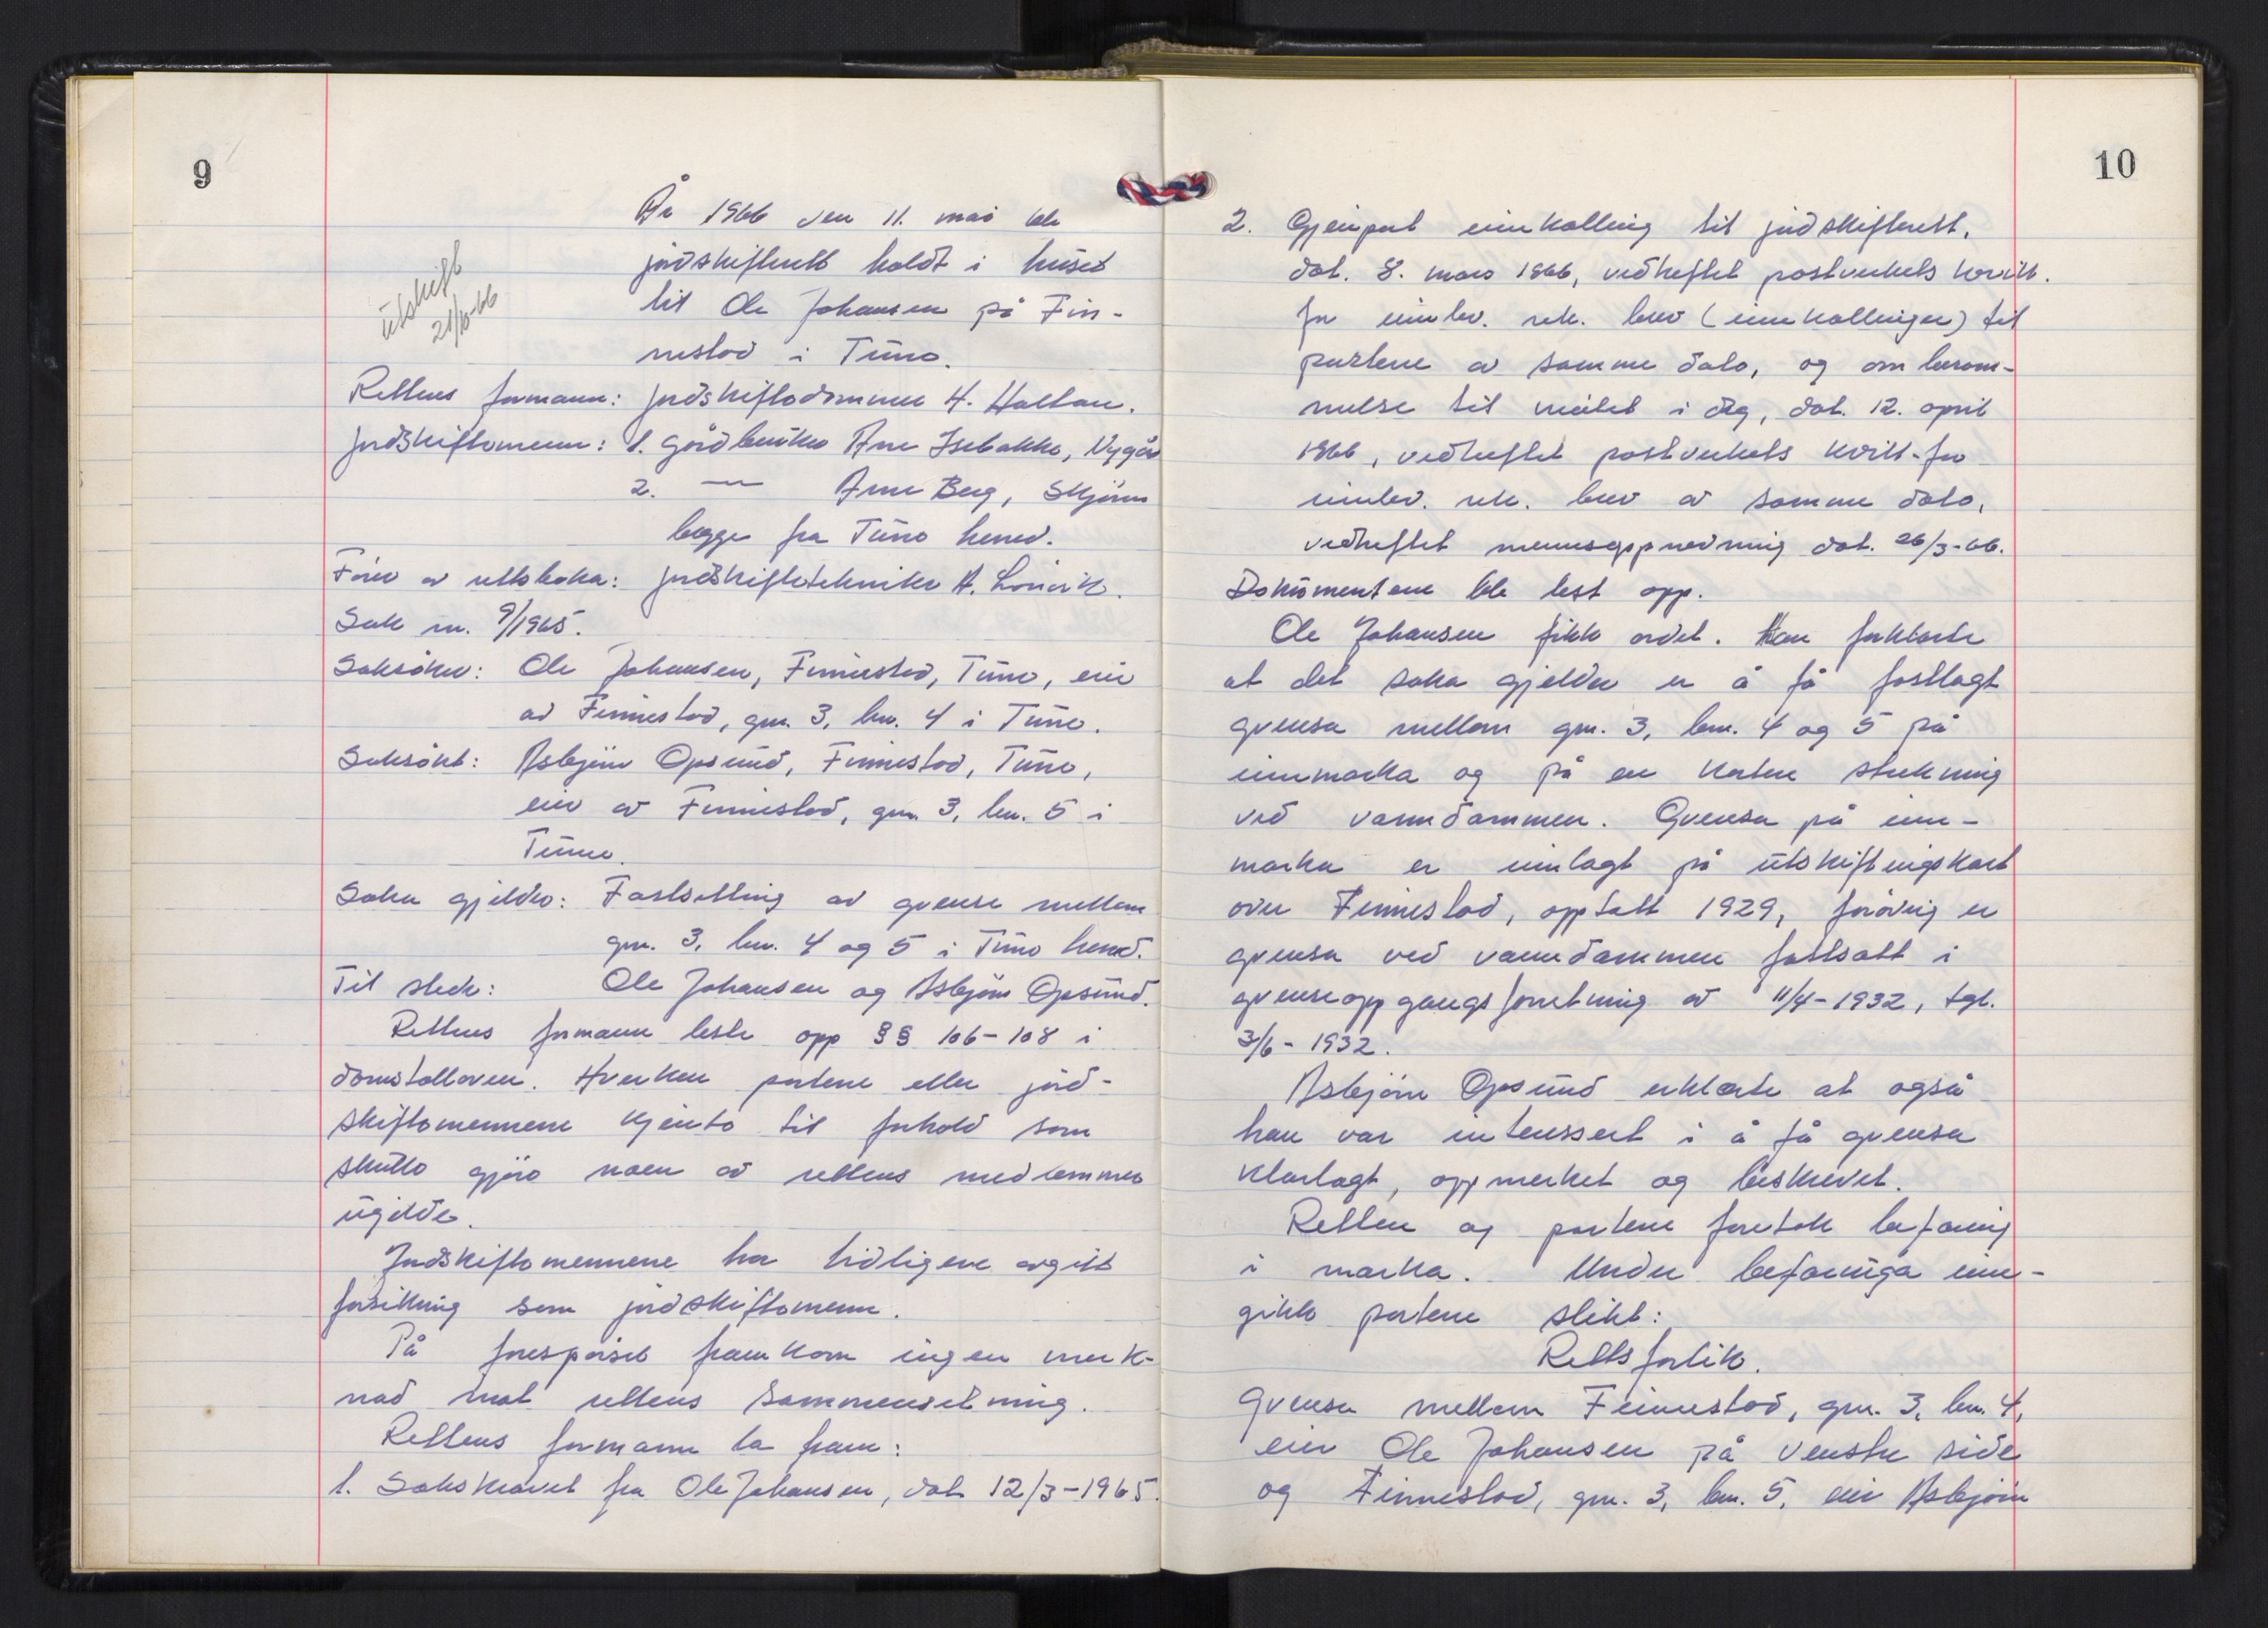 9
År 1966 den 11. mai ble
jordskifterett holdt i huset
til Ole Johansen på Fin-
nestad i Tune.
Utskift
21/10-66
Rettens formann: Jordskiftedommer H. Haltan.
Jordskiftemenn: 1. Gårdbruker Arne Isebakke, Nygård
2. — Arne Berg, Skjørin
begge fra Tune herred.
Fører av rettsboka: Jordskiftetekniker A.
Sak nr. 9/1965.
Saksøker: Ole Johansen, Finnestad, Tune, eier
av Finnestad, gnr. 3, bnr. 4 i Tune.
Saksøkt: Asbjørn Opsund, Finnestad, Tune,
eier av Finnestad, gnr. 3, bnr. 5 i
Tune.
Saken gjelder: Fastsetting av grense mellom
gnr. 3, bnr. 4 og 5 i Tune herred.
Til stede: Ole Johansen og Asbjørn Opsund.
Rettens formann leste opp §§ 106-108 i
domstolloven. Hverken partene eller jord-
skiftemennene kjente til forhold som
skulle gjøre noen av rettens medlemmer
ugilde.
Jordskiftemennene har tidligere avgitt
forsikring som jordskiftemenn.
På forespørsel framkom ingen merk-
nad mot rettens sammensetning.
Rettens formann la fram:
1. Sakskravet fra Ole Johansen, dat 12/3-1965.
10
2. Gjenpart innkalling til jordskifterett,
dat. 8. mars 1966, vedheftet postverkets kvitt.
for innlev. rek. brev (innkallinger) til
partene av samme dato, og om beram-
melse til møtet i dag, dat. 12. april
1966, vedheftet postverkets kvitt. for
innlev. rek. brev av samme dato,
vedheftet mennsoppnevning dat. 26/3-66.
Dokumentene ble lest opp.
Ole Johansen fikk ordet. Han forklarte
at det saka gjelder er å få fastlagt
grensa mellom gnr. 3, bnr. 4 og 5 på
innmarka og på en kortere strekning
ved vanndammen. Grensa på inn-
marka er innlagt på utskiftingskart
over Finnestad, opptatt 1929, forøvrig er
grensa ved vanndammen fastsatt i
grenseoppgangsforretning av 11/4-1932, tgl.
3/6-1932.
Asbjørn Opsund erklærte at også
han var interessert i å få grensa
klarlagt, oppmerket og beskrevet.
Retten og partene foretok befaring
i marka. Under befaringa inn-
gikk partene slikt:
Rettsforlik.
Grensa mellom Finnestad, gnr. 3, bnr. 4,
eier Ole Johansen på venstre side
og Finnestad, gnr. 3, bnr. 5, eier Asbjørn